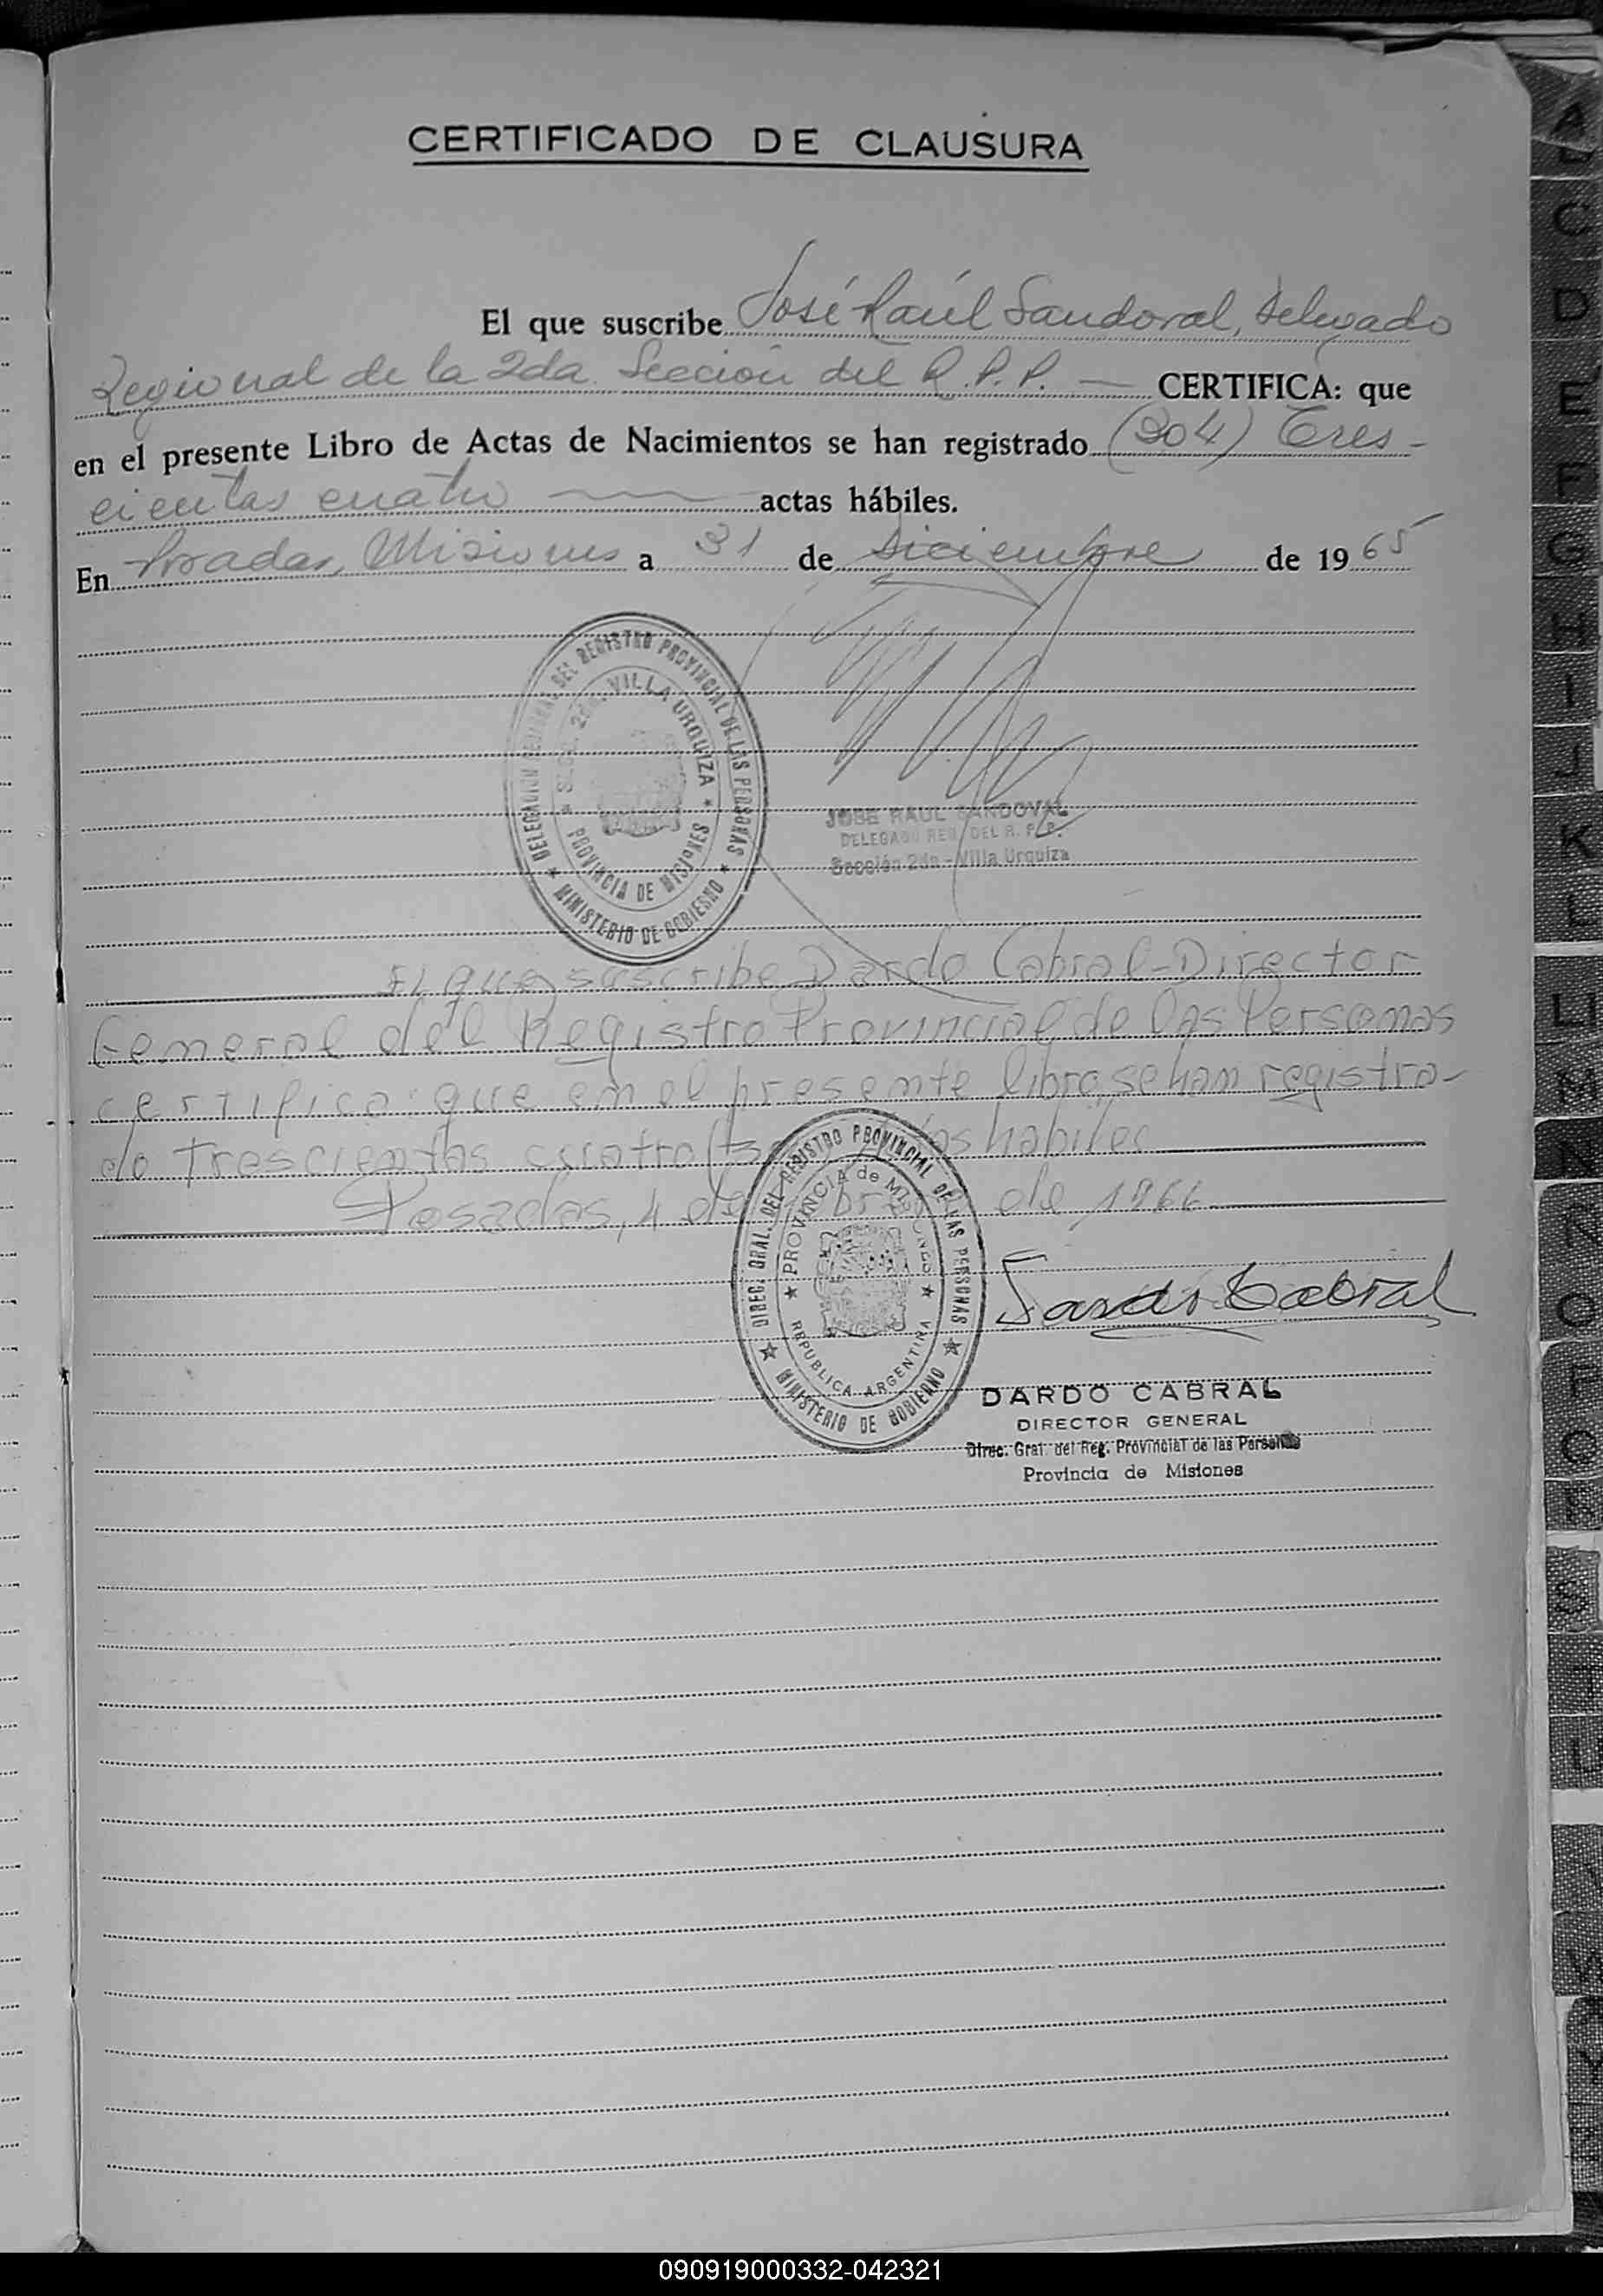 CERTIFICADO DE CLAUSURA
El que suscribe José Raúl Sandoval, Delegado
Regional de la 2da. Sección del R.P.P. — CERTIFICA: que
en el presente Libro de Actas de Nacimientos se han registrado (304) Tres-
cientas cuatro actas hábiles.
En Posadas, Misiones a 31 de Diciembre de 1965
DELEGACION REGIONAL DEL REGISTRO PROVINCIAL DE LAS PERSONAS
SECC. 2da. VILLA URQUIZA
PROVINCIA DE MISIONES
MINISTERIO DE GOBIERNO
JOSE RAUL SANDOVAL
DELEGADO REG. DEL R. P. P.
Sección 2da - Villa Urquiza
El que suscribe Dardo Cabral - Director
General del Registro Provincial de las Personas
certifica: que en el presente libro, se han registra-
do trescientas cuatro hábiles
Posadas, 4 de de 1966
DIREC. GRAL. DEL REGISTRO PROVINCIAL DE LAS PERSONAS
PROVINCIA de MISIONES
REPUBLICA ARGENTINA
MINISTERIO DE GOBIERNO
Dardo Cabral
DARDO CABRAL
DIRECTOR GENERAL
Direc. Gral. del Reg. Provincial de las Personas
Provincia de Misiones
A
C
D
E
F
G
H
I
J
K
L
LL
M
N
Ñ
O
P
Q
R
S
T
U
V
W
X
Y
090919000332-042321